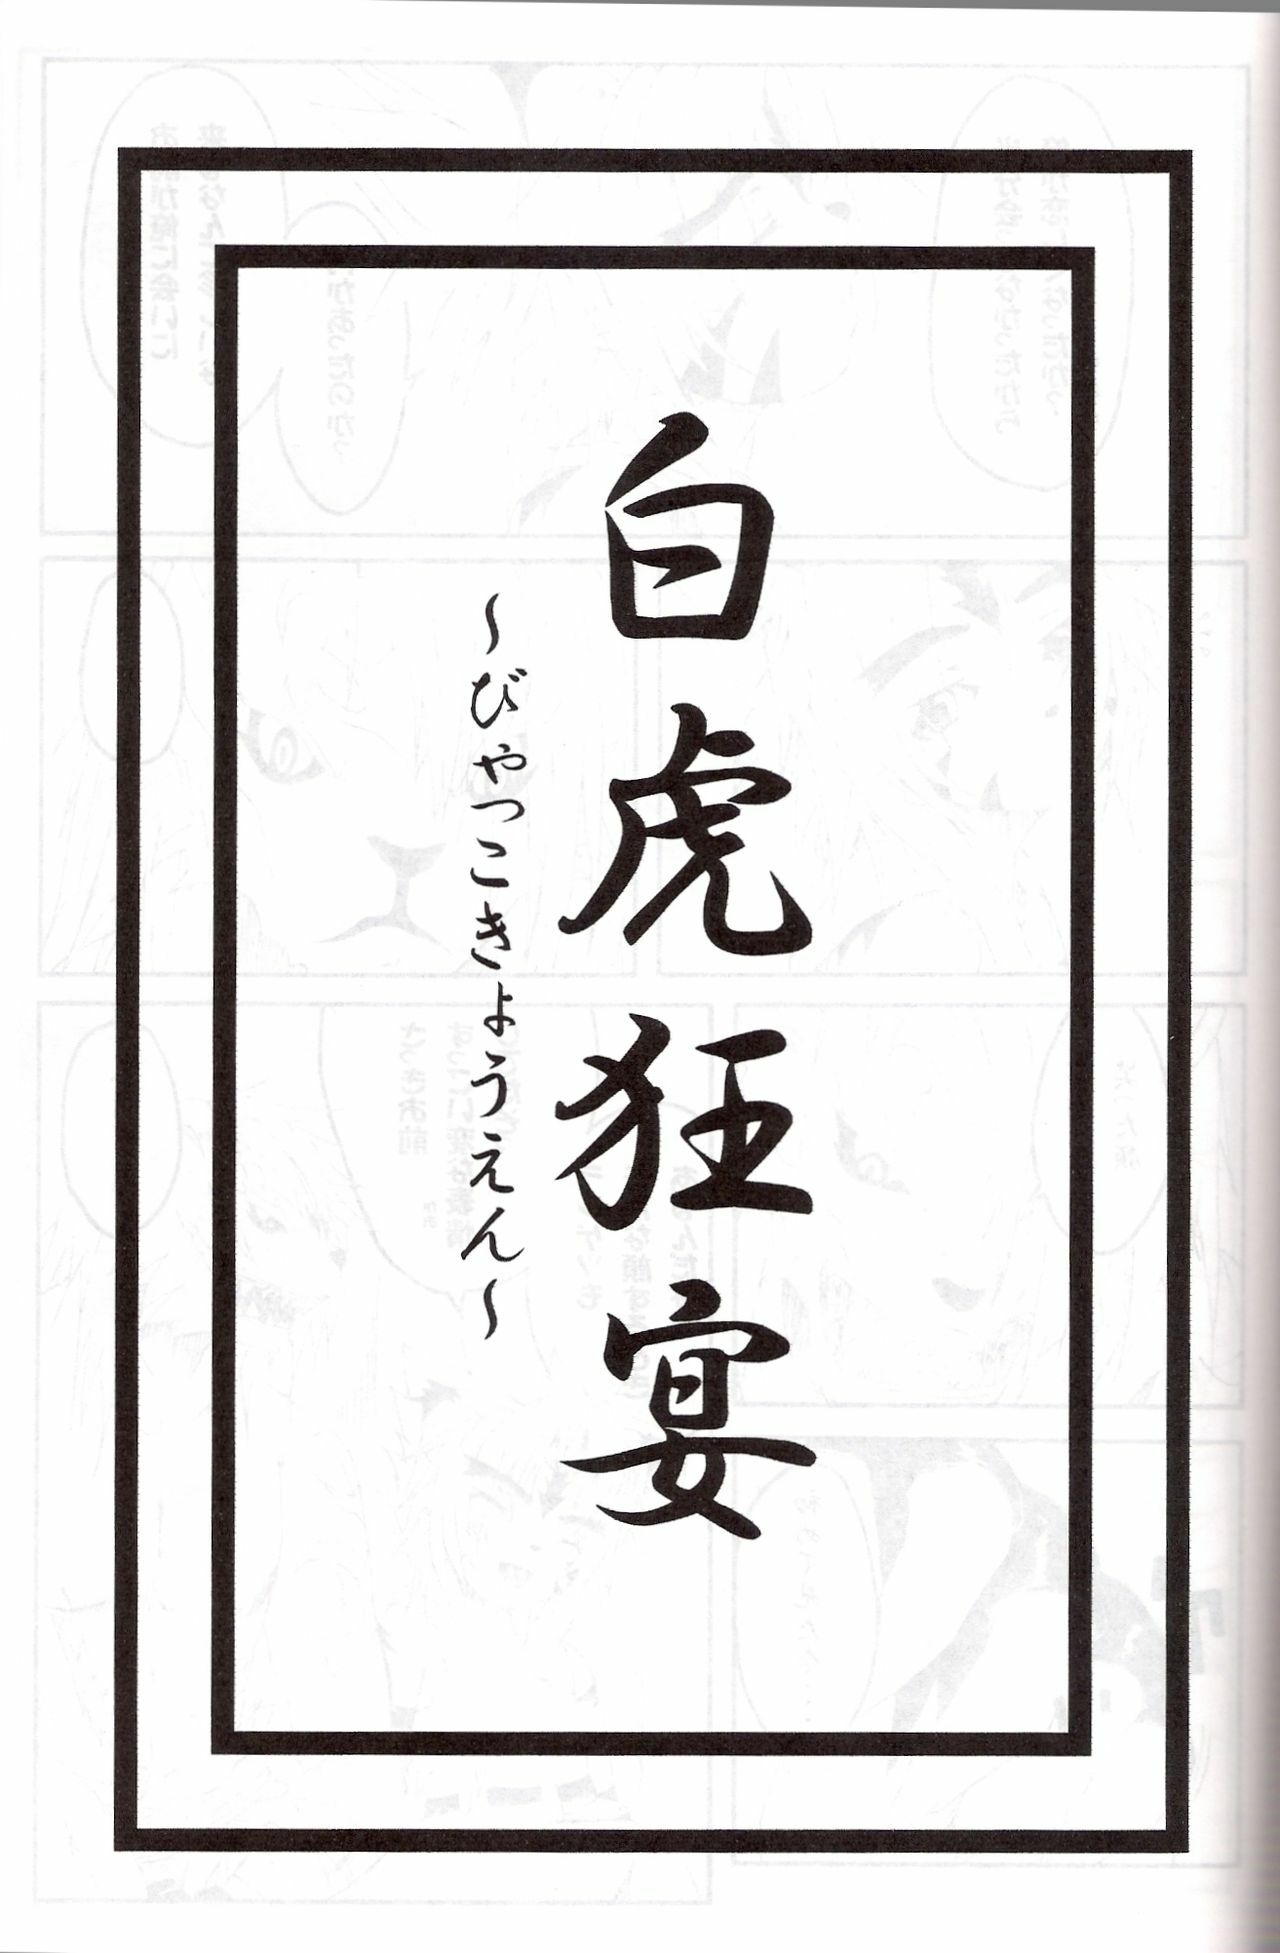 白虎狂宴
～びゃっこきょうえん～